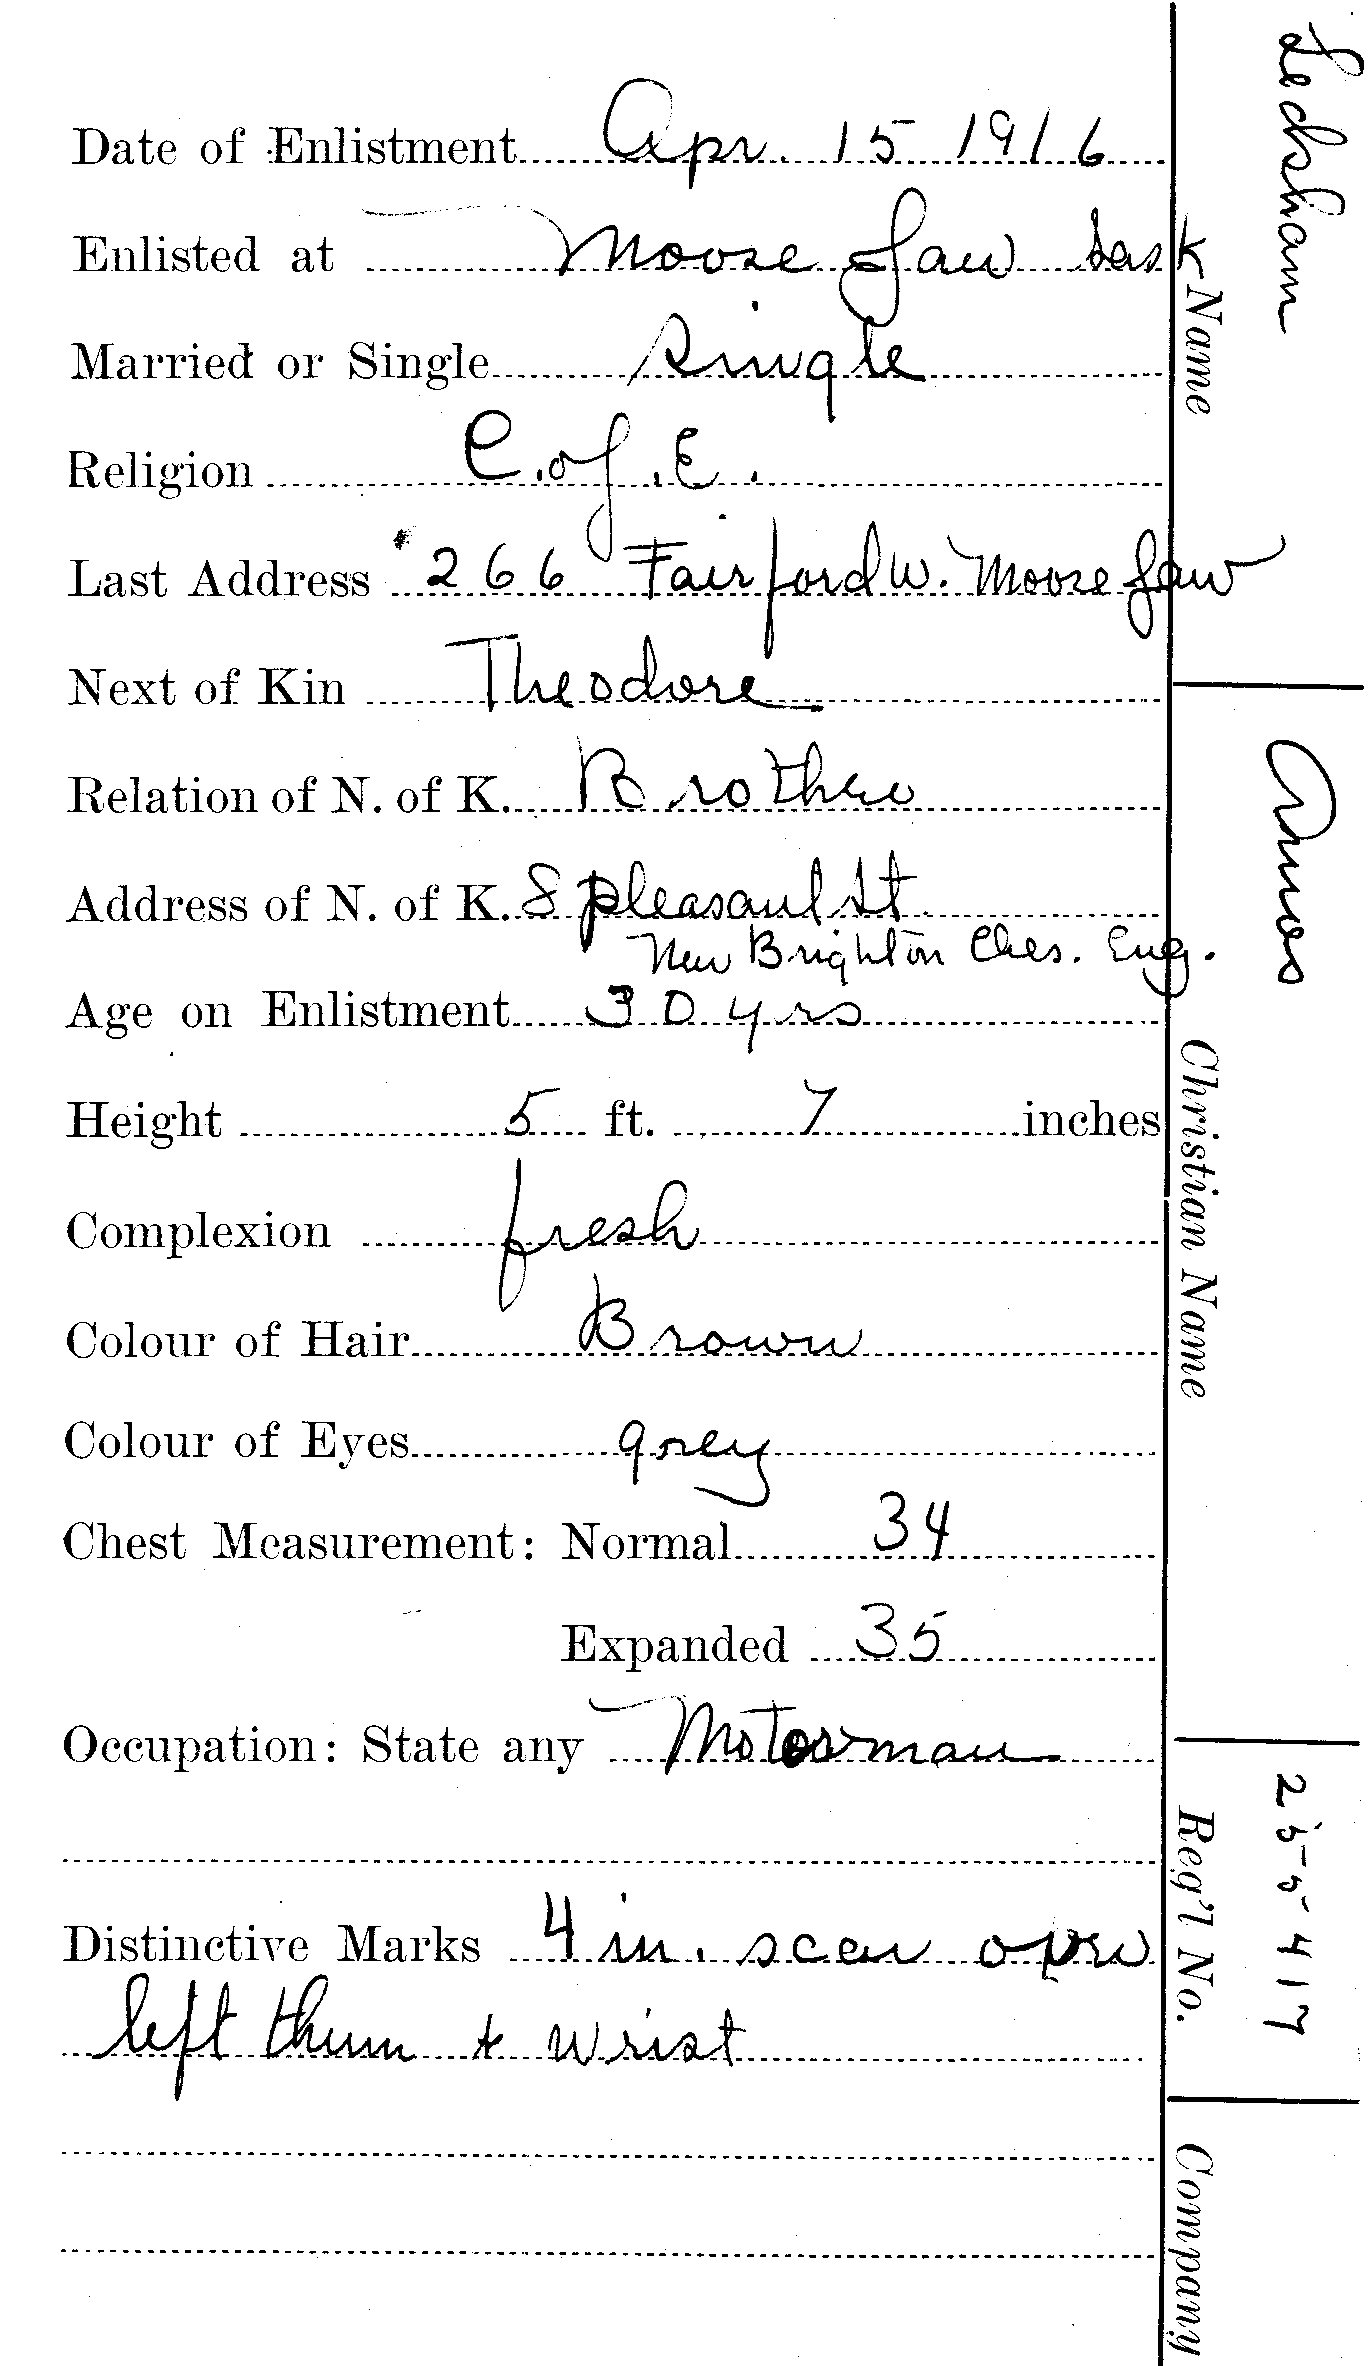 Date of Enlistment Apr. 15 1916
Enlisted at Moose Jaw Sask
Married or Single Single
Religion C. of. E.
Last Address 266 Fairford W. Moose Jaw
Next of Kin Theodore
Relation of N. of K. Brother
Address of N. of K. 8 pleasant St
New Brighton Ches. Eng.
Age on Enlistment 30 yrs
Height 5 ft. 7 inches
Complexion fresh
Colour of Hair Brown
Colour of Eyes grey
Chest Measurement: Normal 34
Expanded 35
Occupation: State any Motorman
Distinctive Marks 4 in. scar over
left thum & wrist
Ledsham
Name
Amos
Christian Name
255417
Reg'l No.
Company